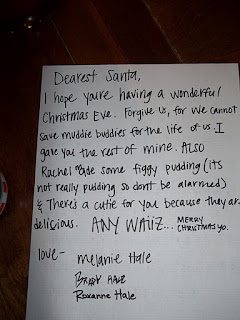 Dearest Santa,
I hope youre having a wonderful
Christmas Eve. Forgive us, for we cannot
save muddie buddies for the life of us. I
gave you the rest of mine. ALSO
Rachel made some figgy pudding (its
not really pudding so dont be alarmed)
& There's a cutie for you because they are
delicious. ANY WAIIZ... MERRY
CHRISTMAS YO.
love-
melanie Hale
BRADY HALE
Roxanne Hale